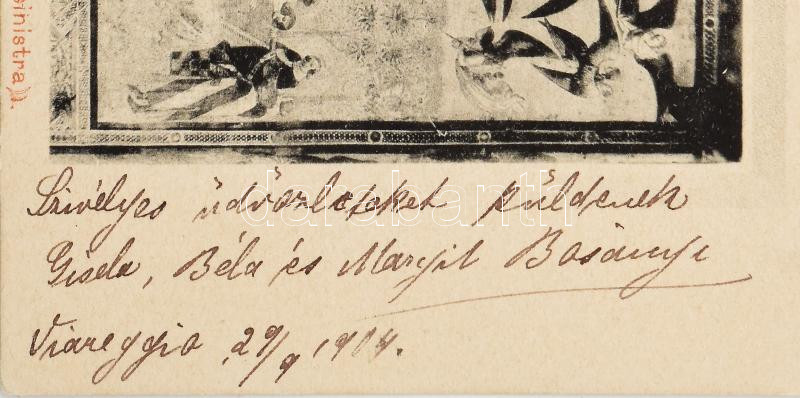 sinistra).
Szivélyes üdvözleteket küldenek
Gisela, Béla és Margit Bosányi
Viareggio, 29/9 1904.
darabanth